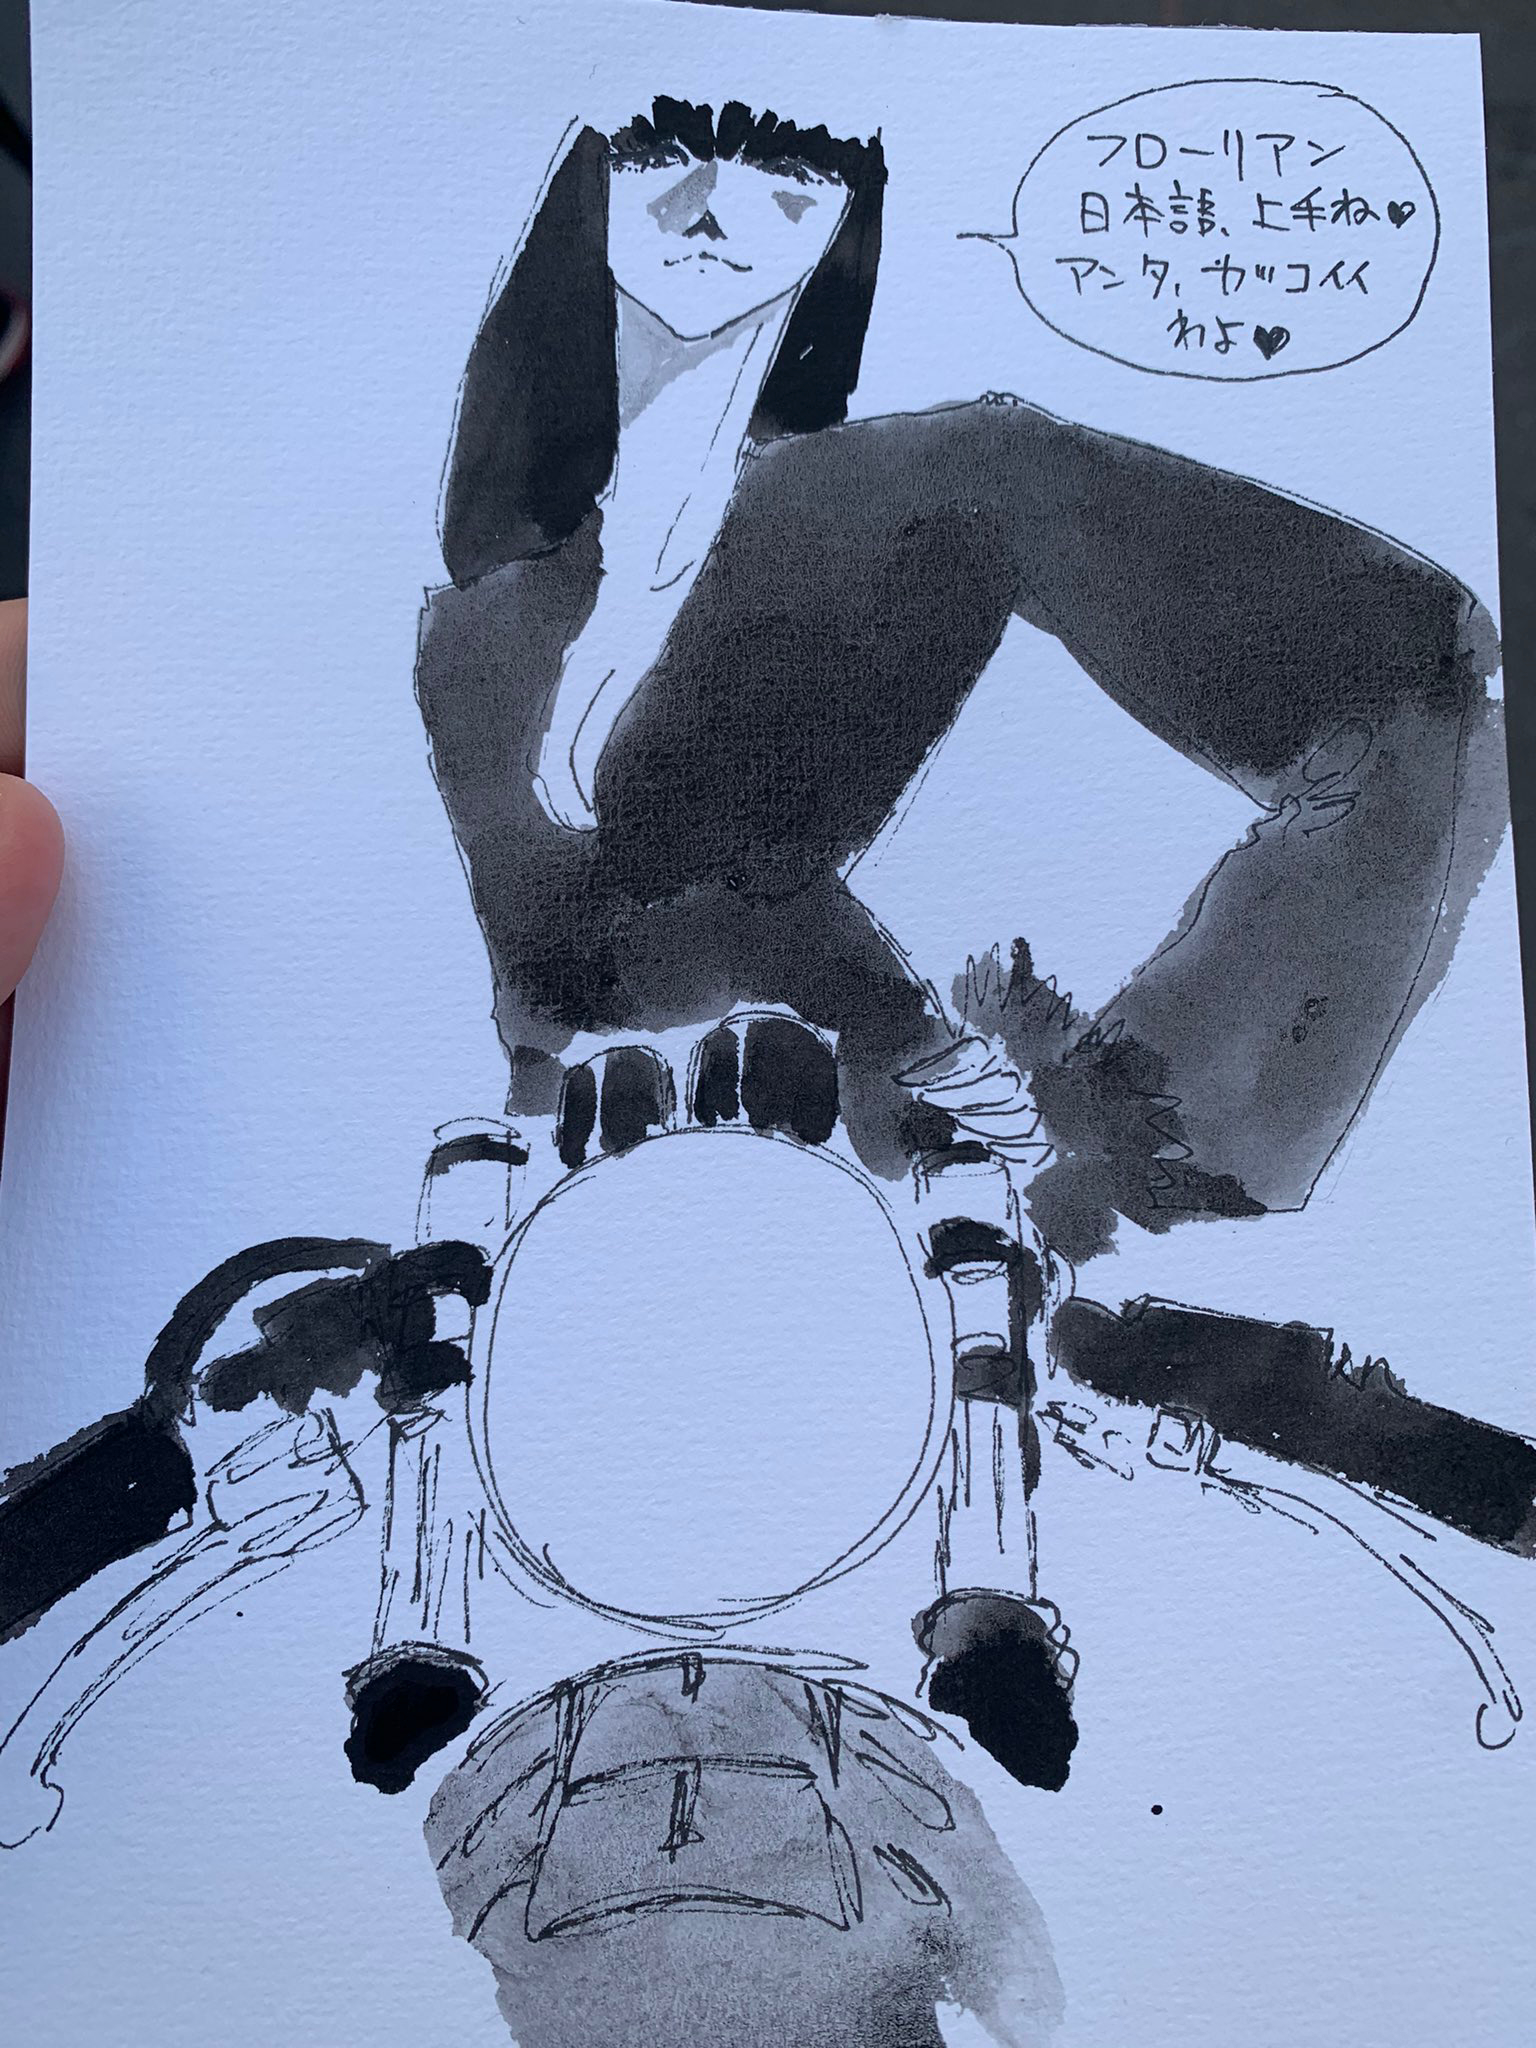 フローリアン
日本語、上手ね♥
アンタ、カッコイイ
わよ♥